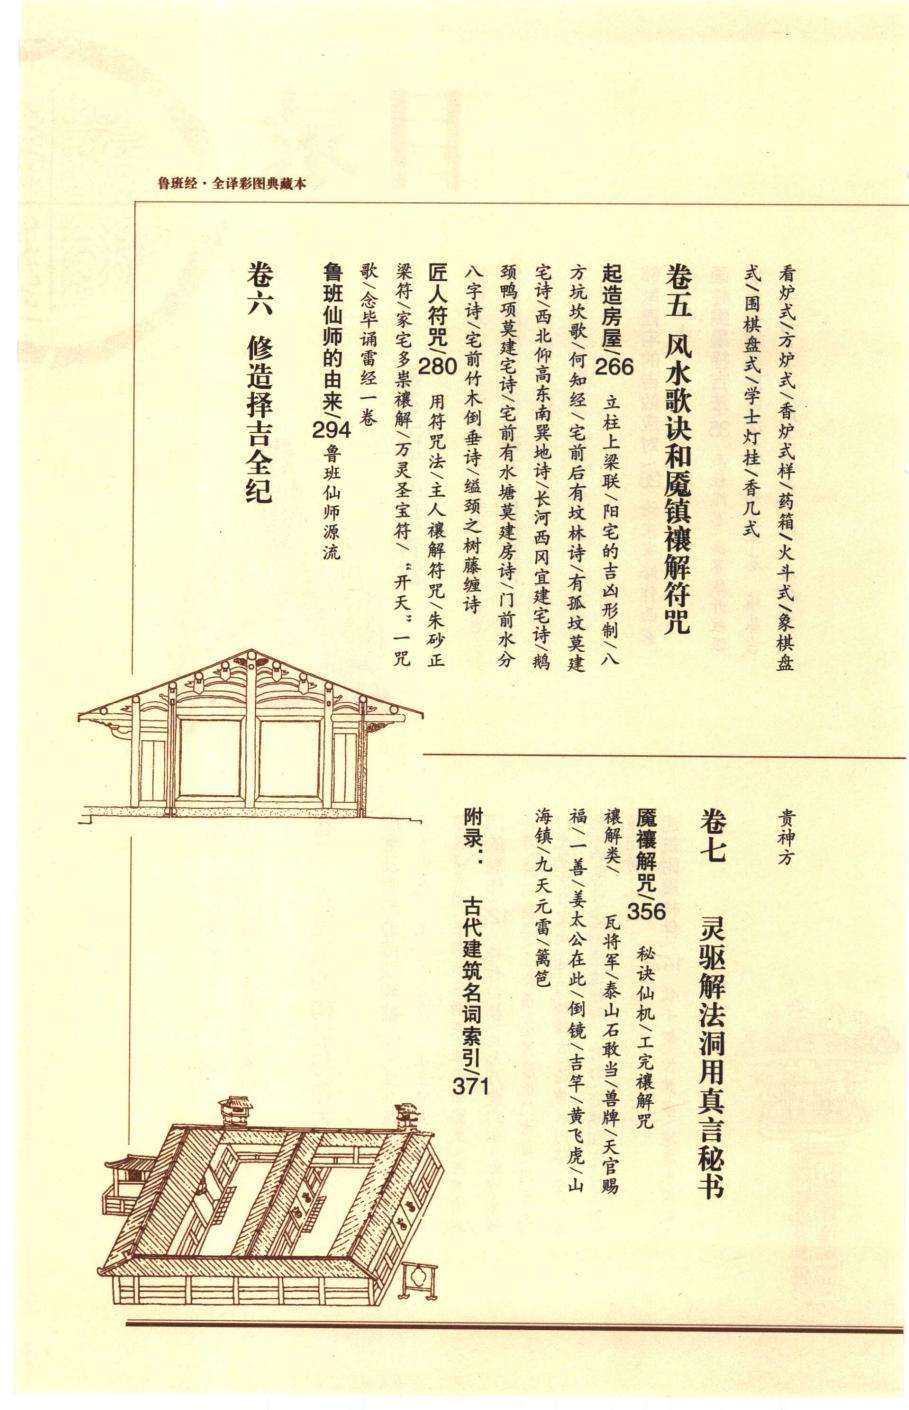 鲁班经·全译彩图典藏本
看炉式/方炉式/香炉式样/药箱/火斗式/象棋盘
式/围棋盘式/学士灯挂/香几式
卷五 风水歌诀和魇镇禳解符咒
起造房屋/266 立柱上梁联/阳宅的吉凶形制/八
方坑坎歌/何知经/宅前后有坟林诗/有孤坟莫建
宅诗/西北仰高东南巽地诗/长河西冈宜建宅诗/鹅
颈鸭项莫建宅诗/宅前有水塘莫建房诗/门前水分
八字诗/宅前竹木倒垂诗/缢颈之树藤缠诗
匠人符咒/280 用符咒法/主人禳解符咒/朱砂正
梁符/家宅多祟禳解/万灵圣宝符/“开天”一咒
歌/念毕诵雷经一卷
鲁班仙师的由来/294 鲁班仙师源流
卷六 修造择吉全纪
贵神方
卷七 灵驱解法洞用真言秘书
魇禳解咒/356 秘诀仙机/工完禳解咒
禳解类/ 瓦将军/泰山石敢当/兽牌/天官赐
福/一善/姜太公在此/倒镜/吉竿/黄飞虎/山
海镇/九天元雷/篱笆
附录： 古代建筑名词索引/371